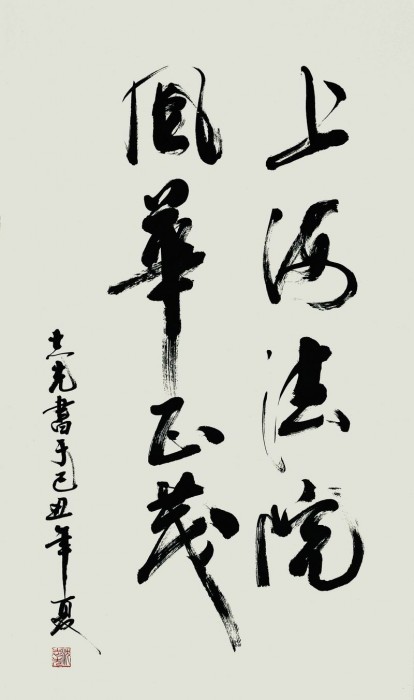 上海法院
風華正茂
志光書于己丑年夏